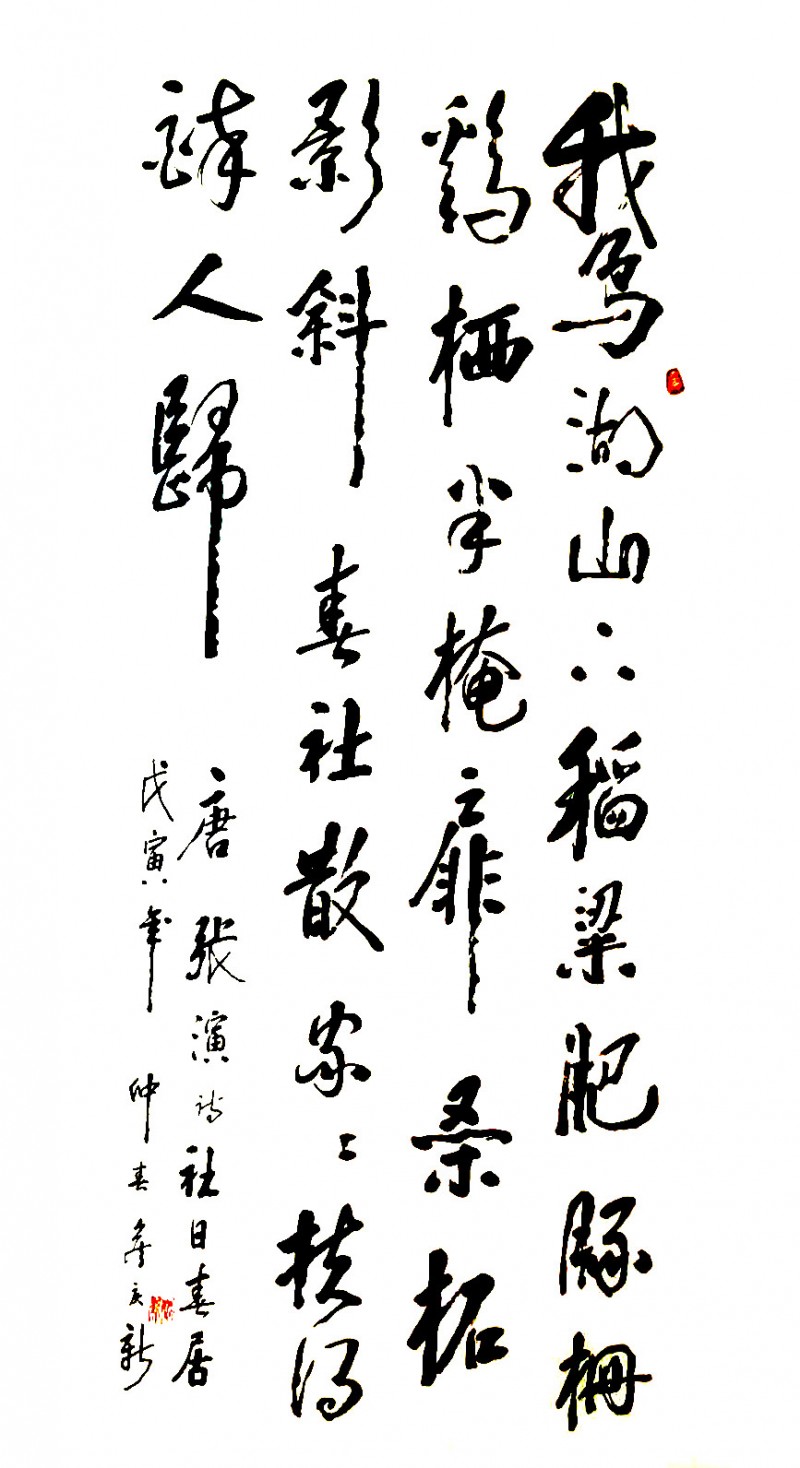 鵝湖山下稻粱肥豚栅
鷄栖半掩扉桑柘
影斜春社散家々扶得
醉人歸
唐張演诗社日春居
戊寅年仲春